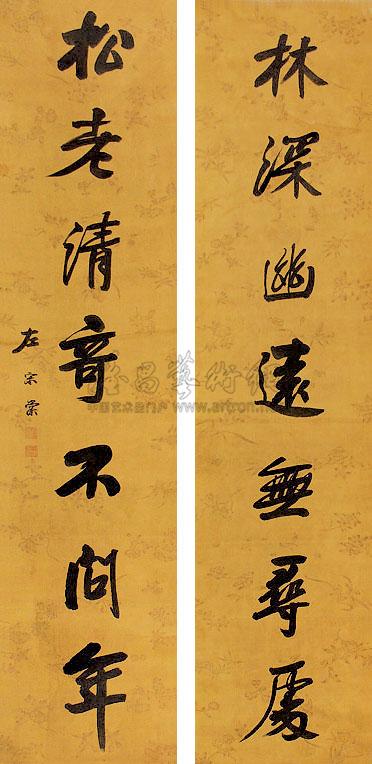 林深幽遠無尋處
松老清竒不問年
左宗棠
雅昌藝術網
www.artron.net